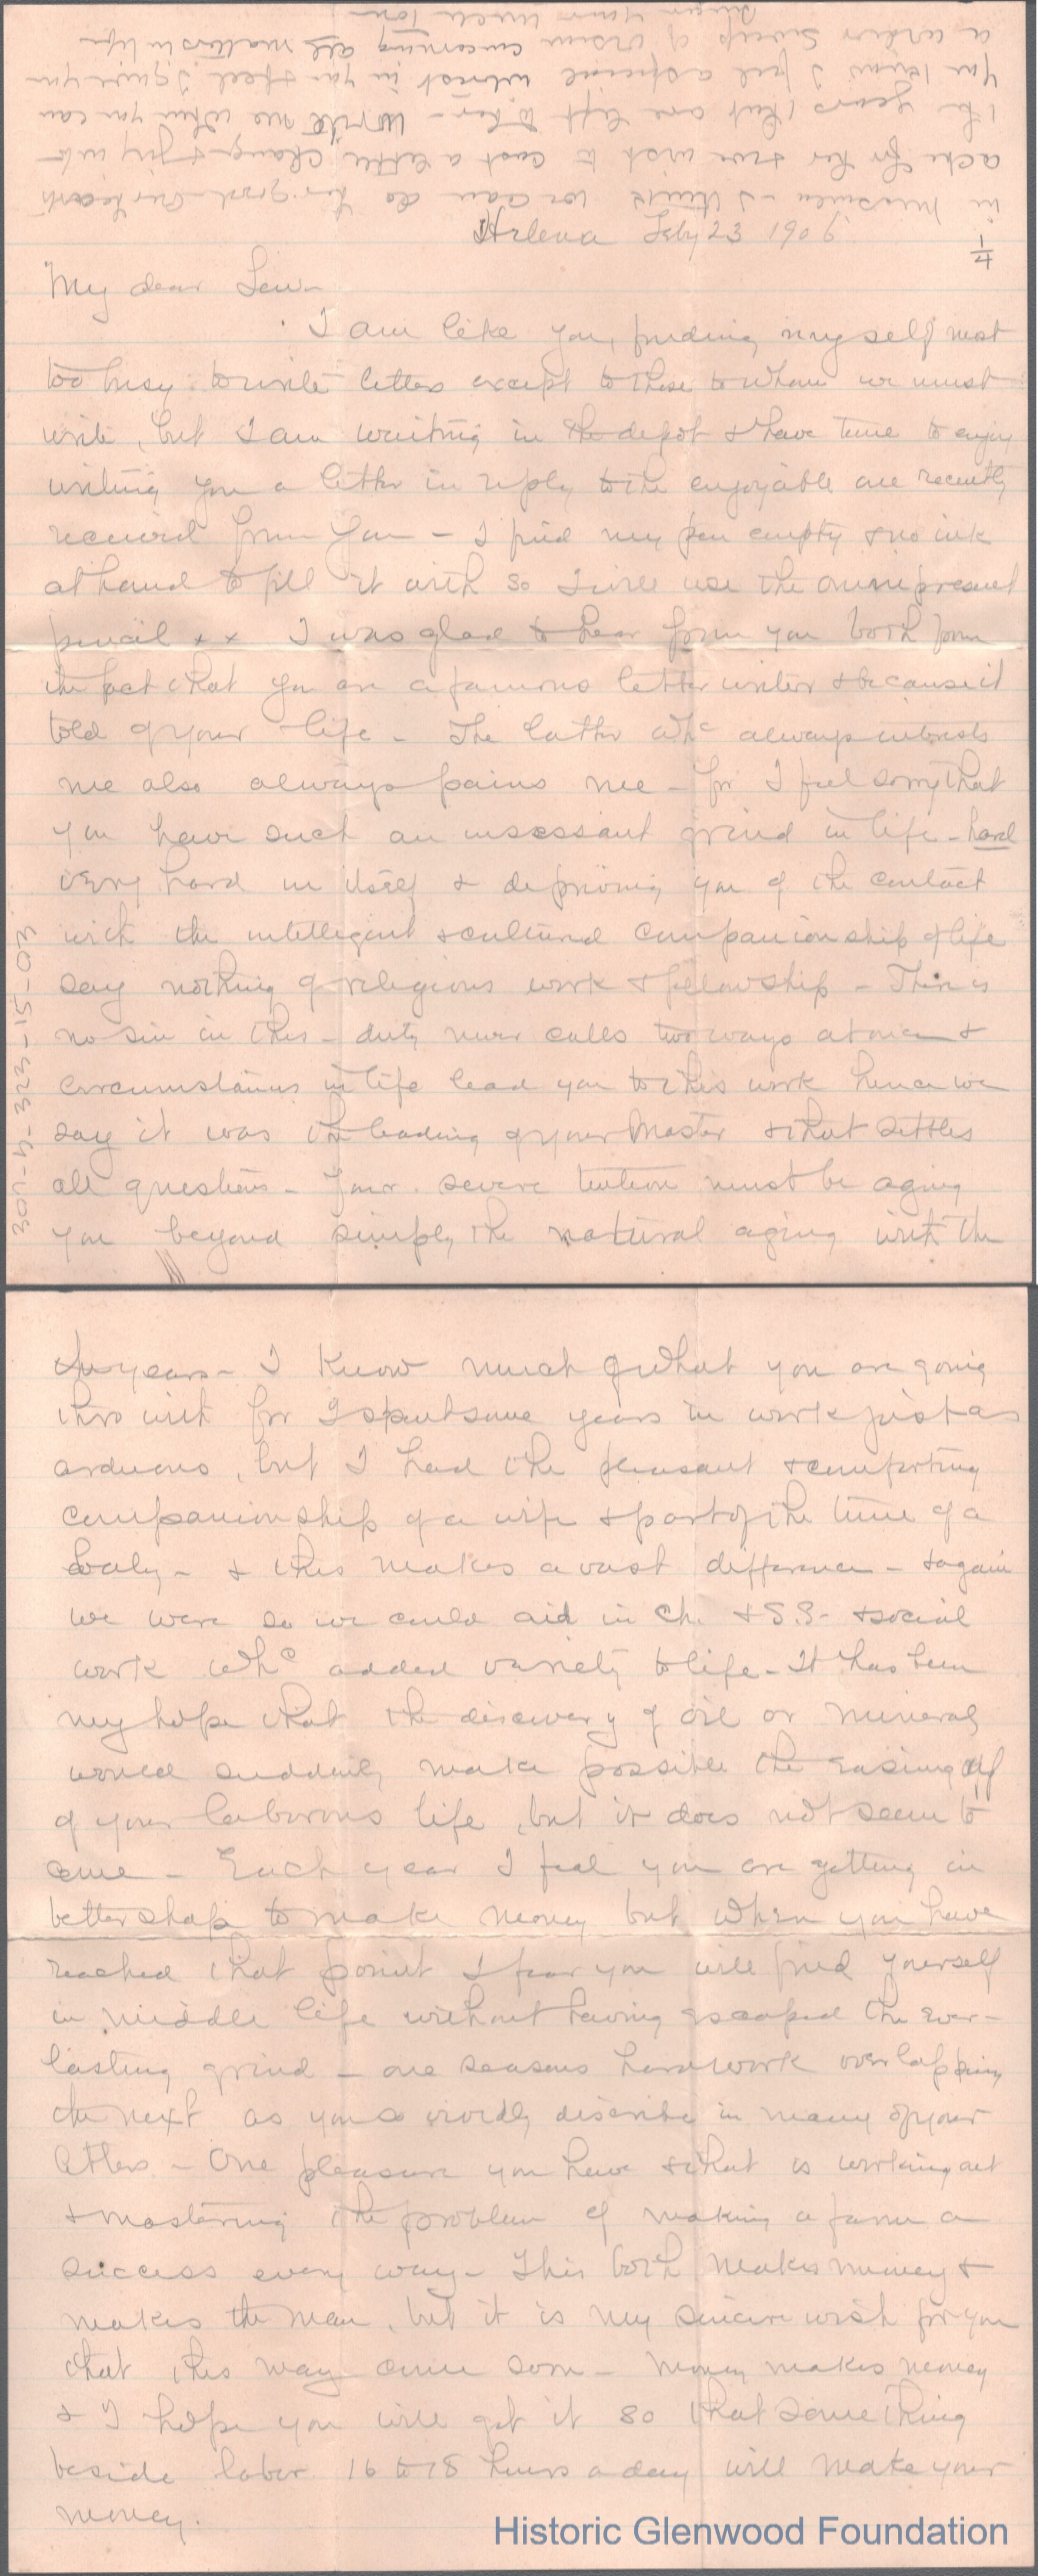 in Missouri - I think we can do her good - Our hearts
ache for her & we wish to cast a little change & joy into
the years that are left to her - Write me when you can
You know I feel a special interest in you & feel I give you
a wider sweep of vision concerning all matters in life
Your Uncle Tom
Helena Feby 23 1906
1/4
My dear Lew-
I am like you, finding myself most
too busy to write letters except to those to whom we must
write, but I am waiting in the depot & have time to enjoy
writing you a letter in reply to the enjoyable one recently
received from you - I find my pen empty & no ink
at hand to fill it with so I will use the omnipresent
pencil x x I was glad to hear from you both from
the fact that you are a famous letter writer & because it
told of your life - The latter whc always interests
me also always pains me - for I feel sorry that
you have such an insessant grind in life - hard
very hard in itself & depriving you of the contact
with the intelligent & cultured companionship of life
say nothing of religious work & fellowship - There is
no sin in this - duty never calls two ways at once &
circumstances in life lead you to this work hence we
say it was the leading of your Master & that settles
all questions - Your severe tention must be aging
you beyond simply the natural aging with the
307-4-323-15-03
years - I know much of what you are going
thro with for I spent some years in work just as
arduous, but I had the pleasant & comforting
companionship of a wife & part of the time of a
baby - & this makes a vast difference - & again
we were so we could aid in Ch. & S.S. & social
work whc added variety to life - It has been
my hope that the discovery of oil or mineral
would suddenly make possible the easing off
of your laborous life, but it does not seem to
come - Each year I feel you are getting in
better shape to make money but when you have
reached that point I fear you will find yourself
in middle life without having escaped the ever-
lasting grind - one seasons hard work overlapping
the next as you so vividly discribe in many of your
letters - One pleasure you have & that is working out
& mastering the problem of making a farm a
success every way - This both makes money &
makes the man, but it is my sincere wish for you
that this may come soon - Money makes money
& I hope you will get it so that something
beside labor 16 to 18 hours a day will make your
money.
Historic Glenwood Foundation